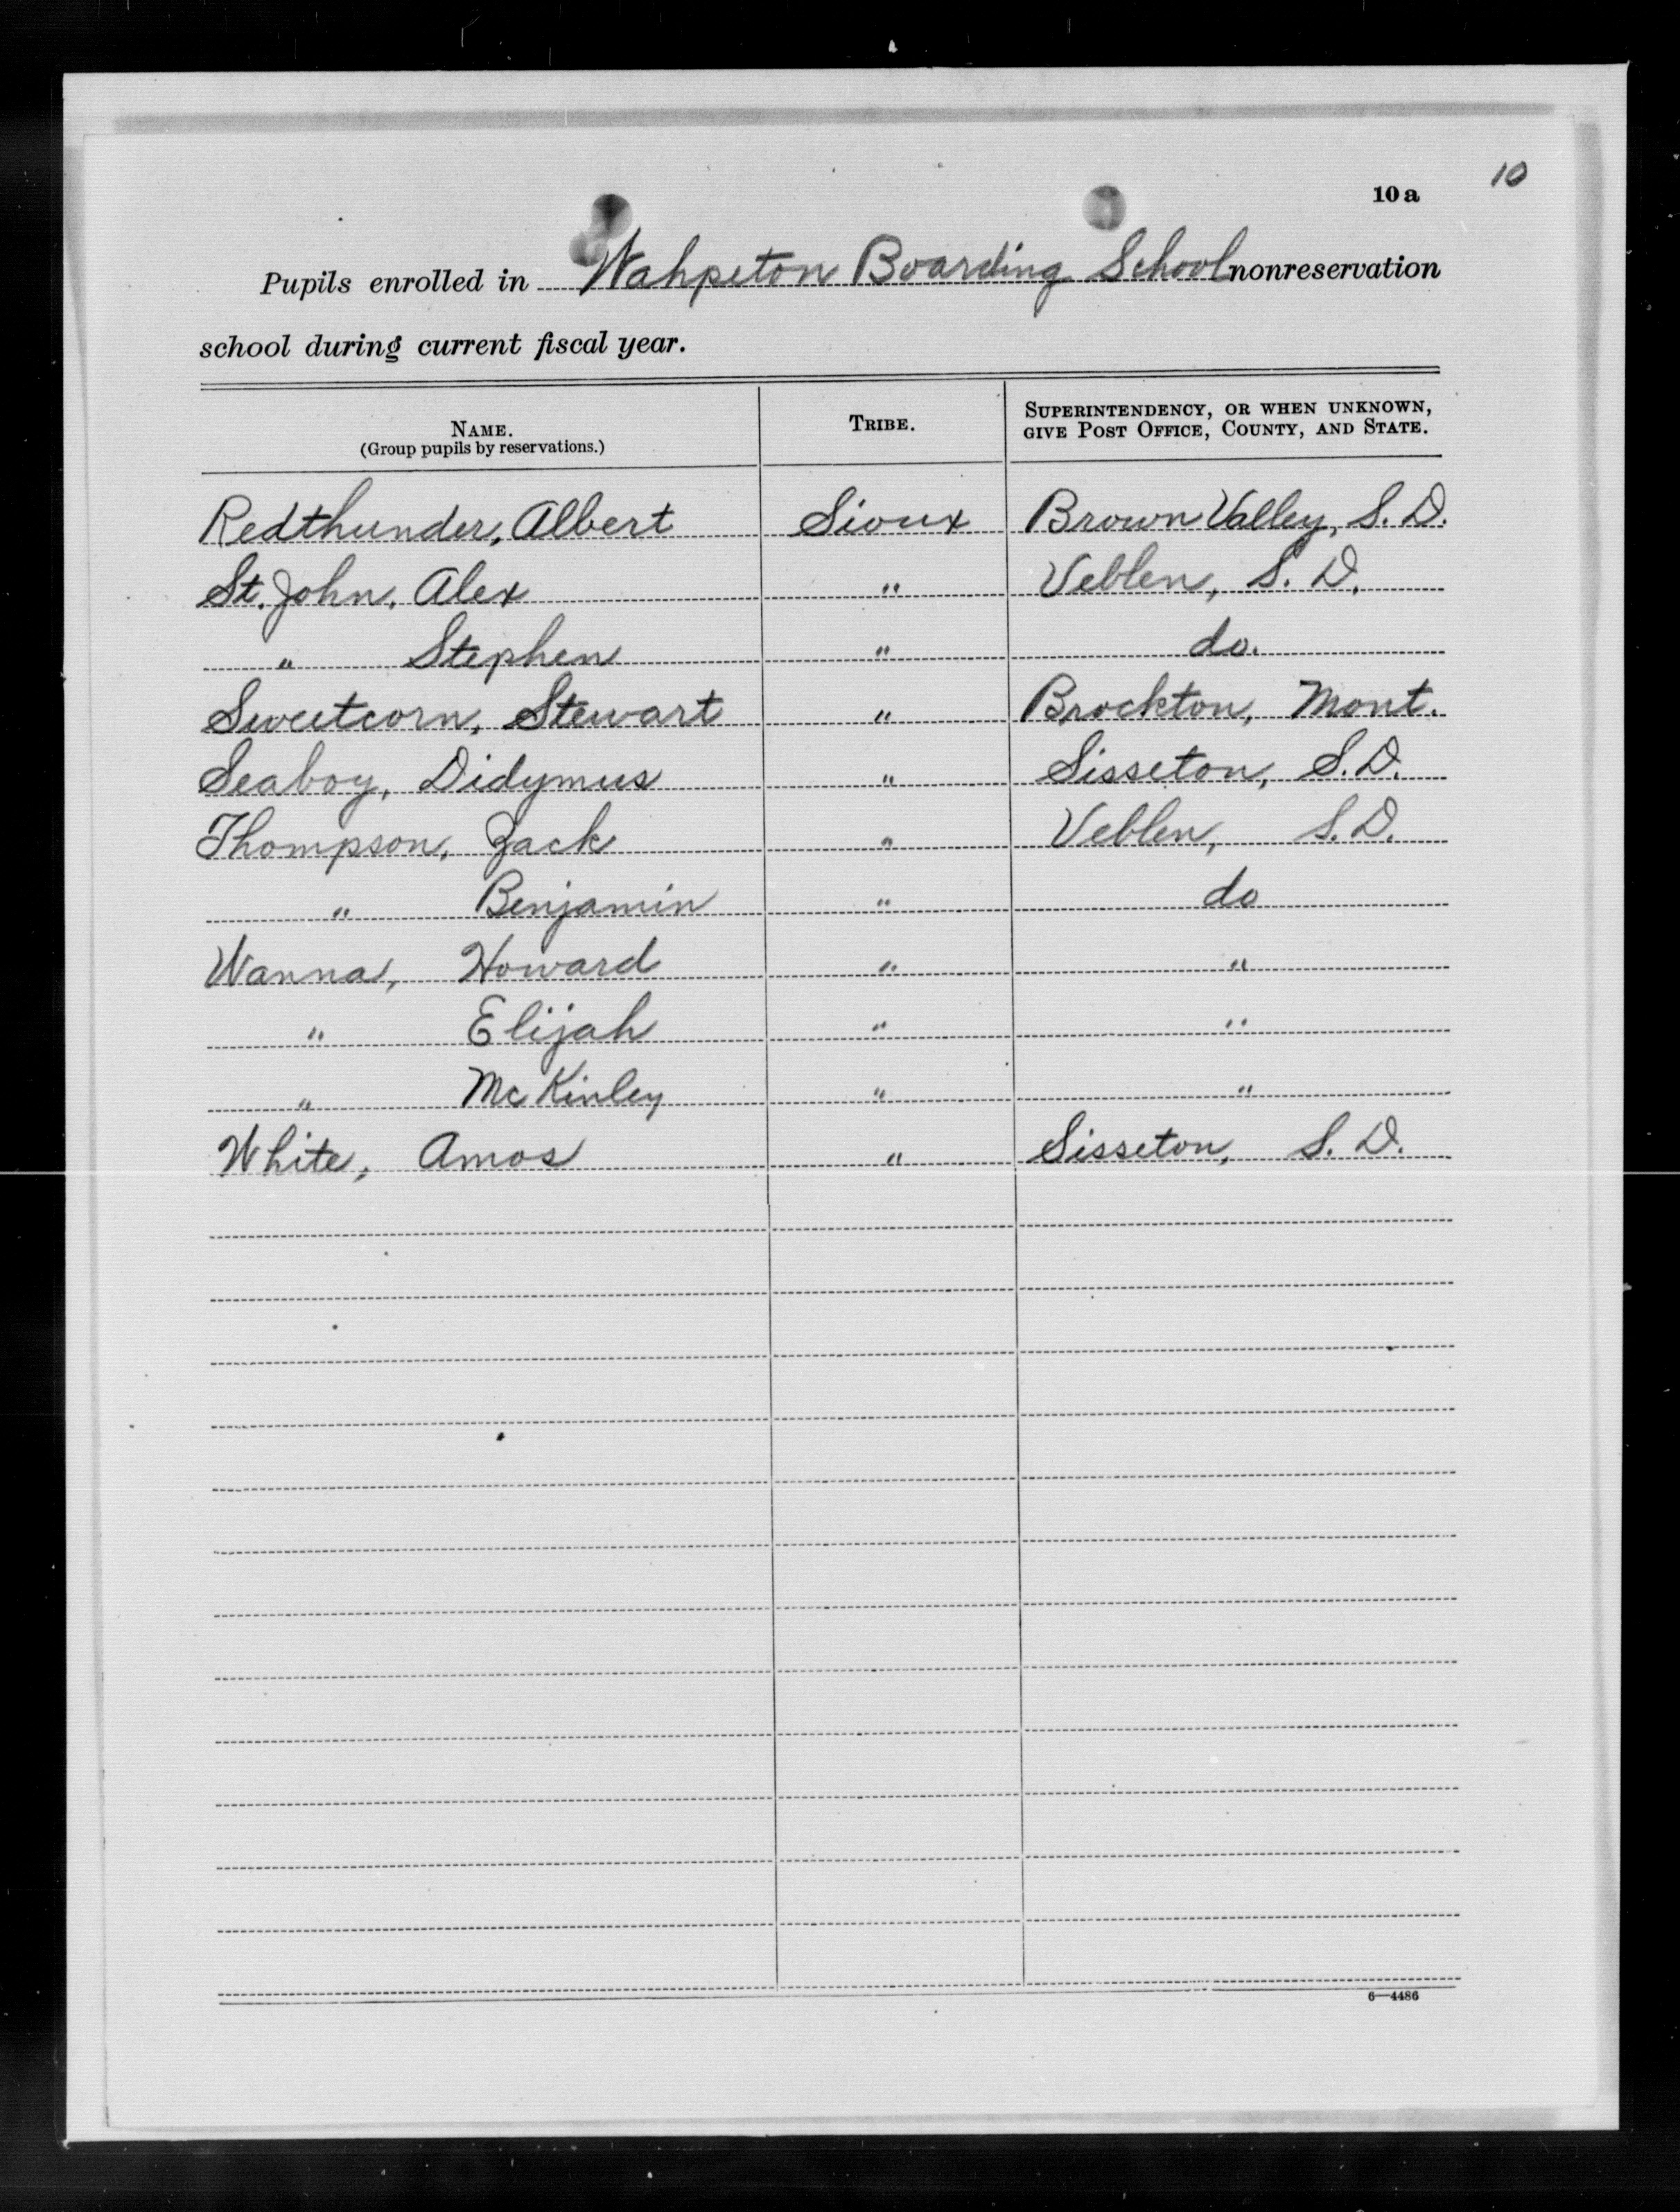 10
10 a
Pupils enrolled in Wahpeton Boarding School nonreservation
school during current fiscal year.
NAME. TRIBE. SUPERINTENDENCY, OR WHEN UNKNOWN,
(Group pupils by reservations.) GIVE POST OFFICE, COUNTY, AND STATE.
Redthunder, Albert Sioux Brown Valley, S. D.
St. John, Alex " Veblen, S. D.
" Stephen " do.
Sweetcorn, Stewart " Brockton, Mont.
Seaboy, Didymus " Sisseton, S.D.
Thompson, Zack " Veblen, S.D.
" Benjamin " do
Wanna, Howard " "
" Elijah " "
" McKinley " "
White, Amos " Sisseton, S. D.
6—4486